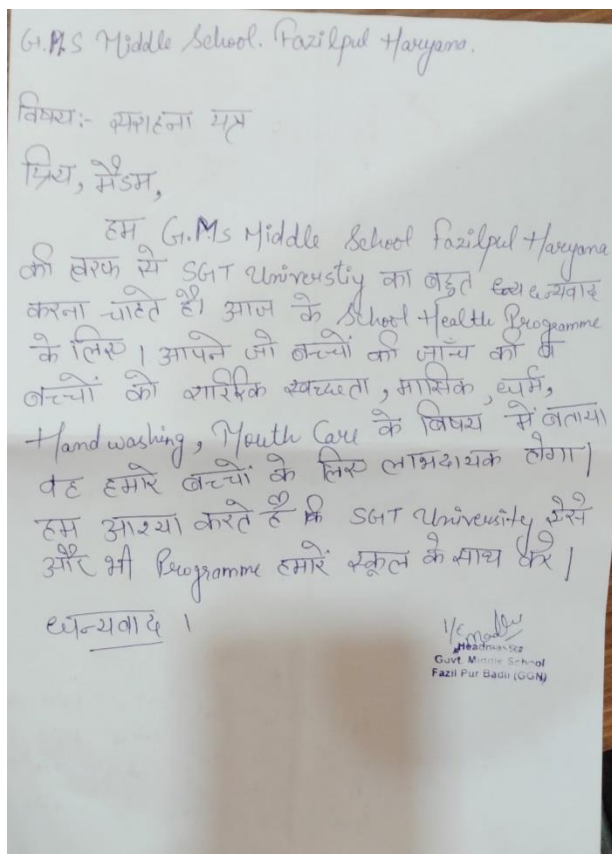 G.M.S Middle School. Fazilpul Haryana.
विषय:- सराहना पत्र
प्रिय, मैडम,
हम G.Ms Middle School Fazilpul Haryana
की तरफ से SGT Universtiy का बहुत धन्यवाद
करना चाहते है। आज के School Health Programme
के लिए। आपने जो बच्चों की जाँच की व
बच्चों को शारिरिक स्वच्छता, मासिक, धर्म,
Handwashing, Mouth Care के विषय में बताया
वह हमारे बच्चों के लिए लाभदायक होगा।
हम आश्या करते है कि SGT University ऐसे
और भी Programme हमारें स्कूल के साथ करे।
धन्यवाद।
I/C
Headmaster
Govt. Middle School
Fazil Pur Badli (GGN)